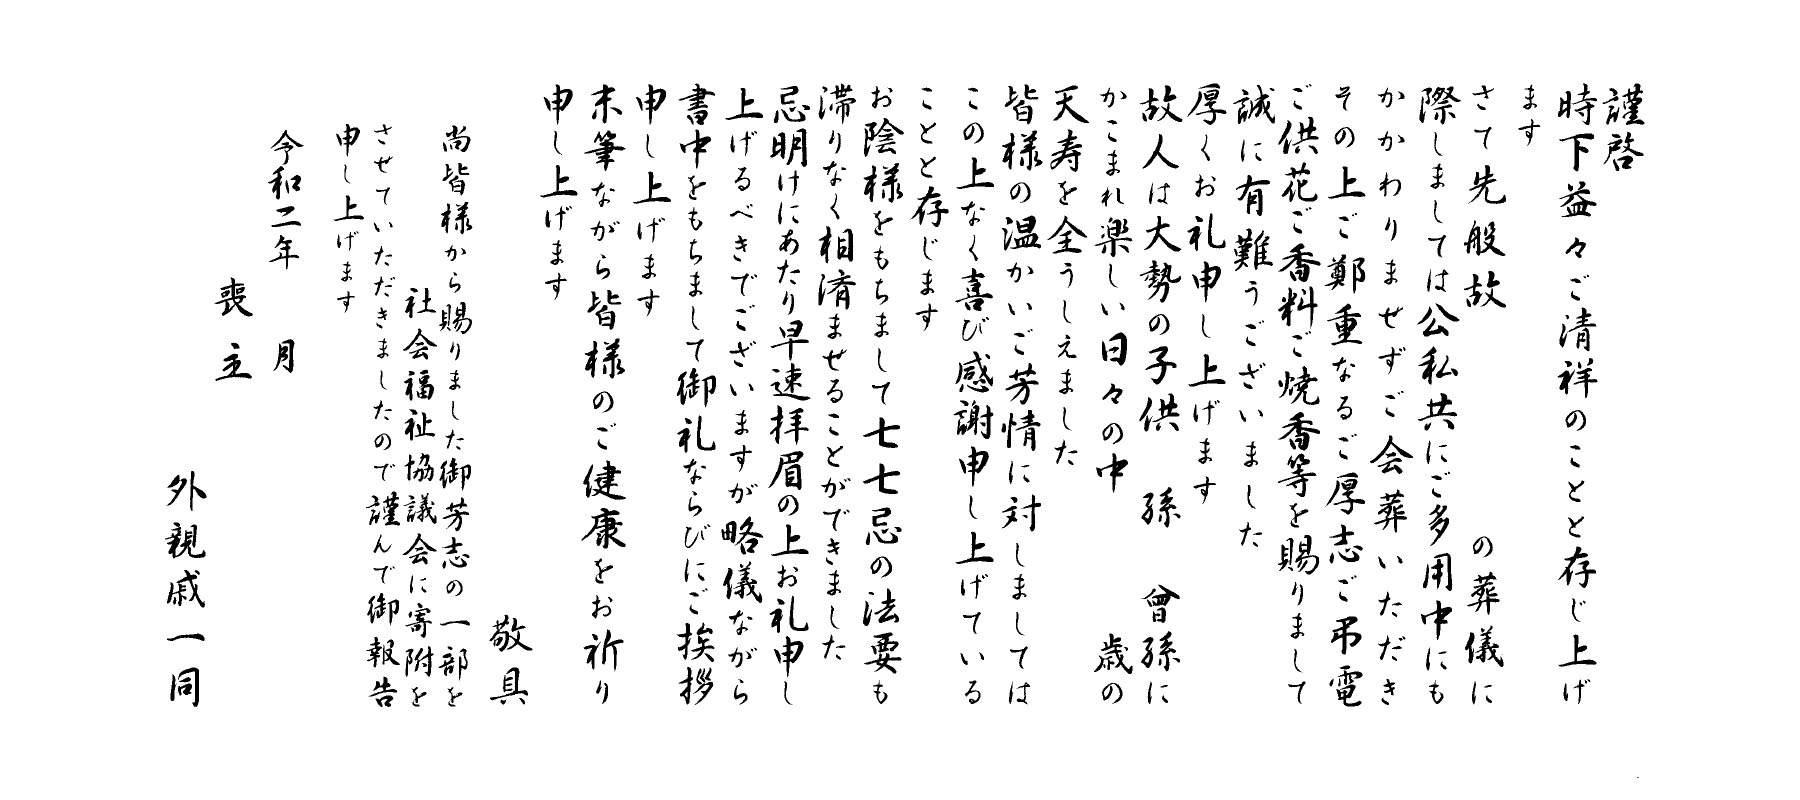 謹啓
時下益々ご清祥のことと存じ上げ
ます
さて先般故　　　　の葬儀に
際しましては公私共にご多用中にも
かかわりませずご会葬いただき
その上ご鄭重なるご厚志ご弔電
ご供花ご香料ご焼香等を賜りまして
誠に有難うございました
厚くお礼申し上げます
故人は大勢の子供　孫　曾孫に
かこまれ楽しい日々の中　　　歳の
天寿を全うしえました
皆様の温かいご芳情に対しましては
この上なく喜び感謝申し上げている
ことと存じます
お陰様をもちまして七七忌の法要も
滞りなく相済ませることができました
忌明けにあたり早速拝眉の上お礼申し
上げるべきでございますが略儀ながら
書中をもちまして御礼ならびにご挨拶
申し上げます
末筆ながら皆様のご健康をお祈り
申し上げます
敬具
尚皆様から賜りました御芳志の一部を
社会福祉協議会に寄附を
させていただきましたので謹んで御報告
申し上げます
令和二年　　月
喪主
外親戚一同